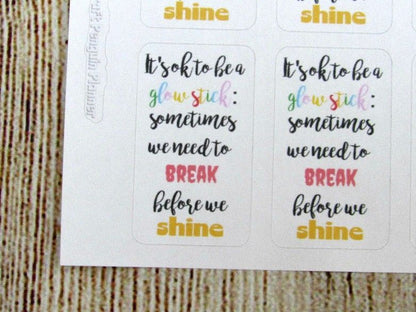 shine
shine
It's ok to be a
glow stick:
sometimes
we need to
BREAK
before we
shine
It's ok to be a
glow stick:
sometimes
we need to
BREAK
before we
shine
Penguin Planner